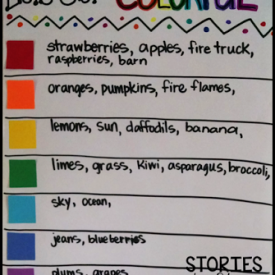 COLORFUL
strawberries, apples, fire truck,
raspberries, barn
oranges, pumpkins, fire flames,
lemons, sun, daffodils, banana,
limes, grass, kiwi, asparagus, broccoli,
sky, ocean,
jeans, blueberries
STORIES
plums, grapes